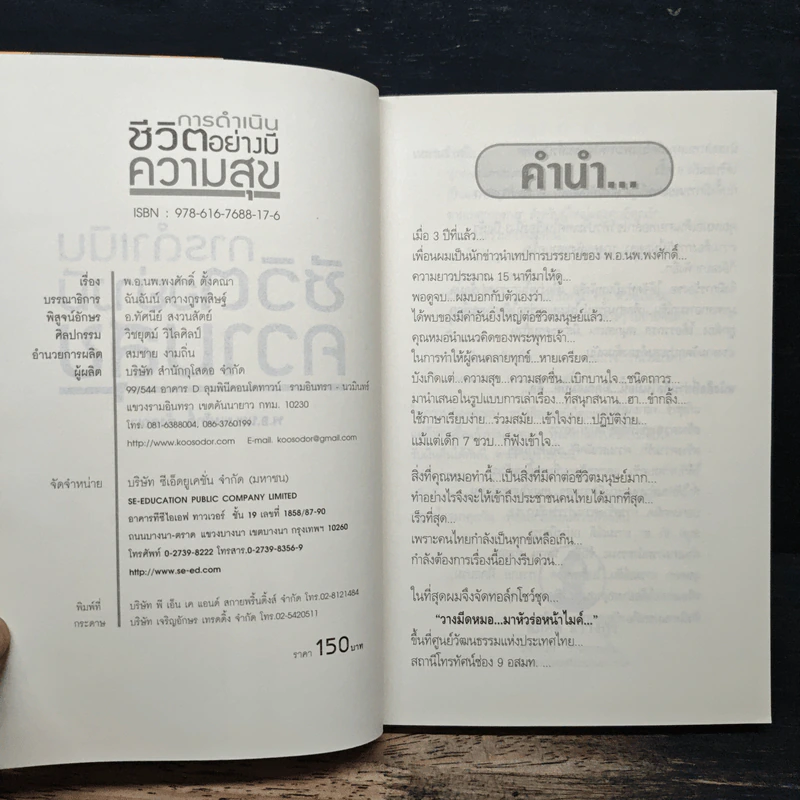 การดำเนิน
ชีวิตอย่างมี
ความสุข
ISBN : 978-616-7688-17-6
เรื่อง พ.อ.นพ.พงศักดิ์ ตั้งคณา
บรรณาธิการ ฉันฉันน์ ลวางกูรพสิษฐ์
พิสูจน์อักษร อ.ทัศนีย์ สงวนสัตย์
ศิลปกรรม วิชยุตม์ วิไลศิลป์
อำนวยการผลิต สมชาย งามถิ่น
ผู้ผลิต บริษัท สำนักกุโสดอ จำกัด
99/544 อาคาร D ลุมพินีคอนโดทาวน์ รามอินทรา - นวมินทร์
แขวงรามอินทรา เขตคันนายาว กทม. 10230
โทร. 081-6388004, 086-3760199
http://www.koosodor.com E-mail. koosodor@gmail.com
จัดจำหน่าย บริษัท ซีเอ็ดยูเคชั่น จำกัด (มหาชน)
SE-EDUCATION PUBLIC COMPANY LIMITED
อาคารทีซีไอเอฟ ทาวเวอร์ ชั้น 19 เลขที่ 1858/87-90
ถนนบางนา-ตราด แขวงบางนา เขตบางนา กรุงเทพฯ 10260
โทรศัพท์ 0-2739-8222 โทรสาร.0-2739-8356-9
http://www.se-ed.com
พิมพ์ที่ บริษัท พี เอ็น เค แอนด์ สกายพริ้นติ้งส์ จำกัด โทร.02-8121484
กระดาษ บริษัท เจริญอักษร เทรดดิ้ง จำกัด โทร.02-5420511
ราคา 150 บาท
คำนำ...
เมื่อ 3 ปีที่แล้ว...
เพื่อนผมเป็นนักข่าวนำเทปการบรรยายของ พ.อ.นพ.พงศักดิ์...
ความยาวประมาณ 15 นาทีมาให้ดู...
พอดูจบ...ผมบอกกับตัวเองว่า...
ได้พบของมีค่าอันยิ่งใหญ่ต่อชีวิตมนุษย์แล้ว...
คุณหมอนำแนวคิดของพระพุทธเจ้า...
ในการทำให้ผู้คนคลายทุกข์...หายเครียด...
บังเกิดแต่...ความสุข...ความสดชื่น...เบิกบานใจ...ชนิดถาวร...
มานำเสนอในรูปแบบการเล่าเรื่อง...ที่สนุกสนาน...ฮา...ขำกลิ้ง...
ใช้ภาษาเรียบง่าย...ร่วมสมัย...เข้าใจง่าย...ปฏิบัติง่าย...
แม้แต่เด็ก 7 ขวบ...ก็ฟังเข้าใจ...
สิ่งที่คุณหมอทำนี้...เป็นสิ่งที่มีค่าต่อชีวิตมนุษย์มาก...
ทำอย่างไรจึงจะให้เข้าถึงประชาชนคนไทยได้มากที่สุด...
เร็วที่สุด...
เพราะคนไทยกำลังเป็นทุกข์เหลือเกิน...
กำลังต้องการเรื่องนี้อย่างรีบด่วน...
ในที่สุดผมจึงจัดทอล์กโชว์ชุด...
"วางมีดหมอ...มาหัวร่อหน้าไมค์..."
ขึ้นที่ศูนย์วัฒนธรรมแห่งประเทศไทย...
สถานีโทรทัศน์ช่อง 9 อสมท. ...